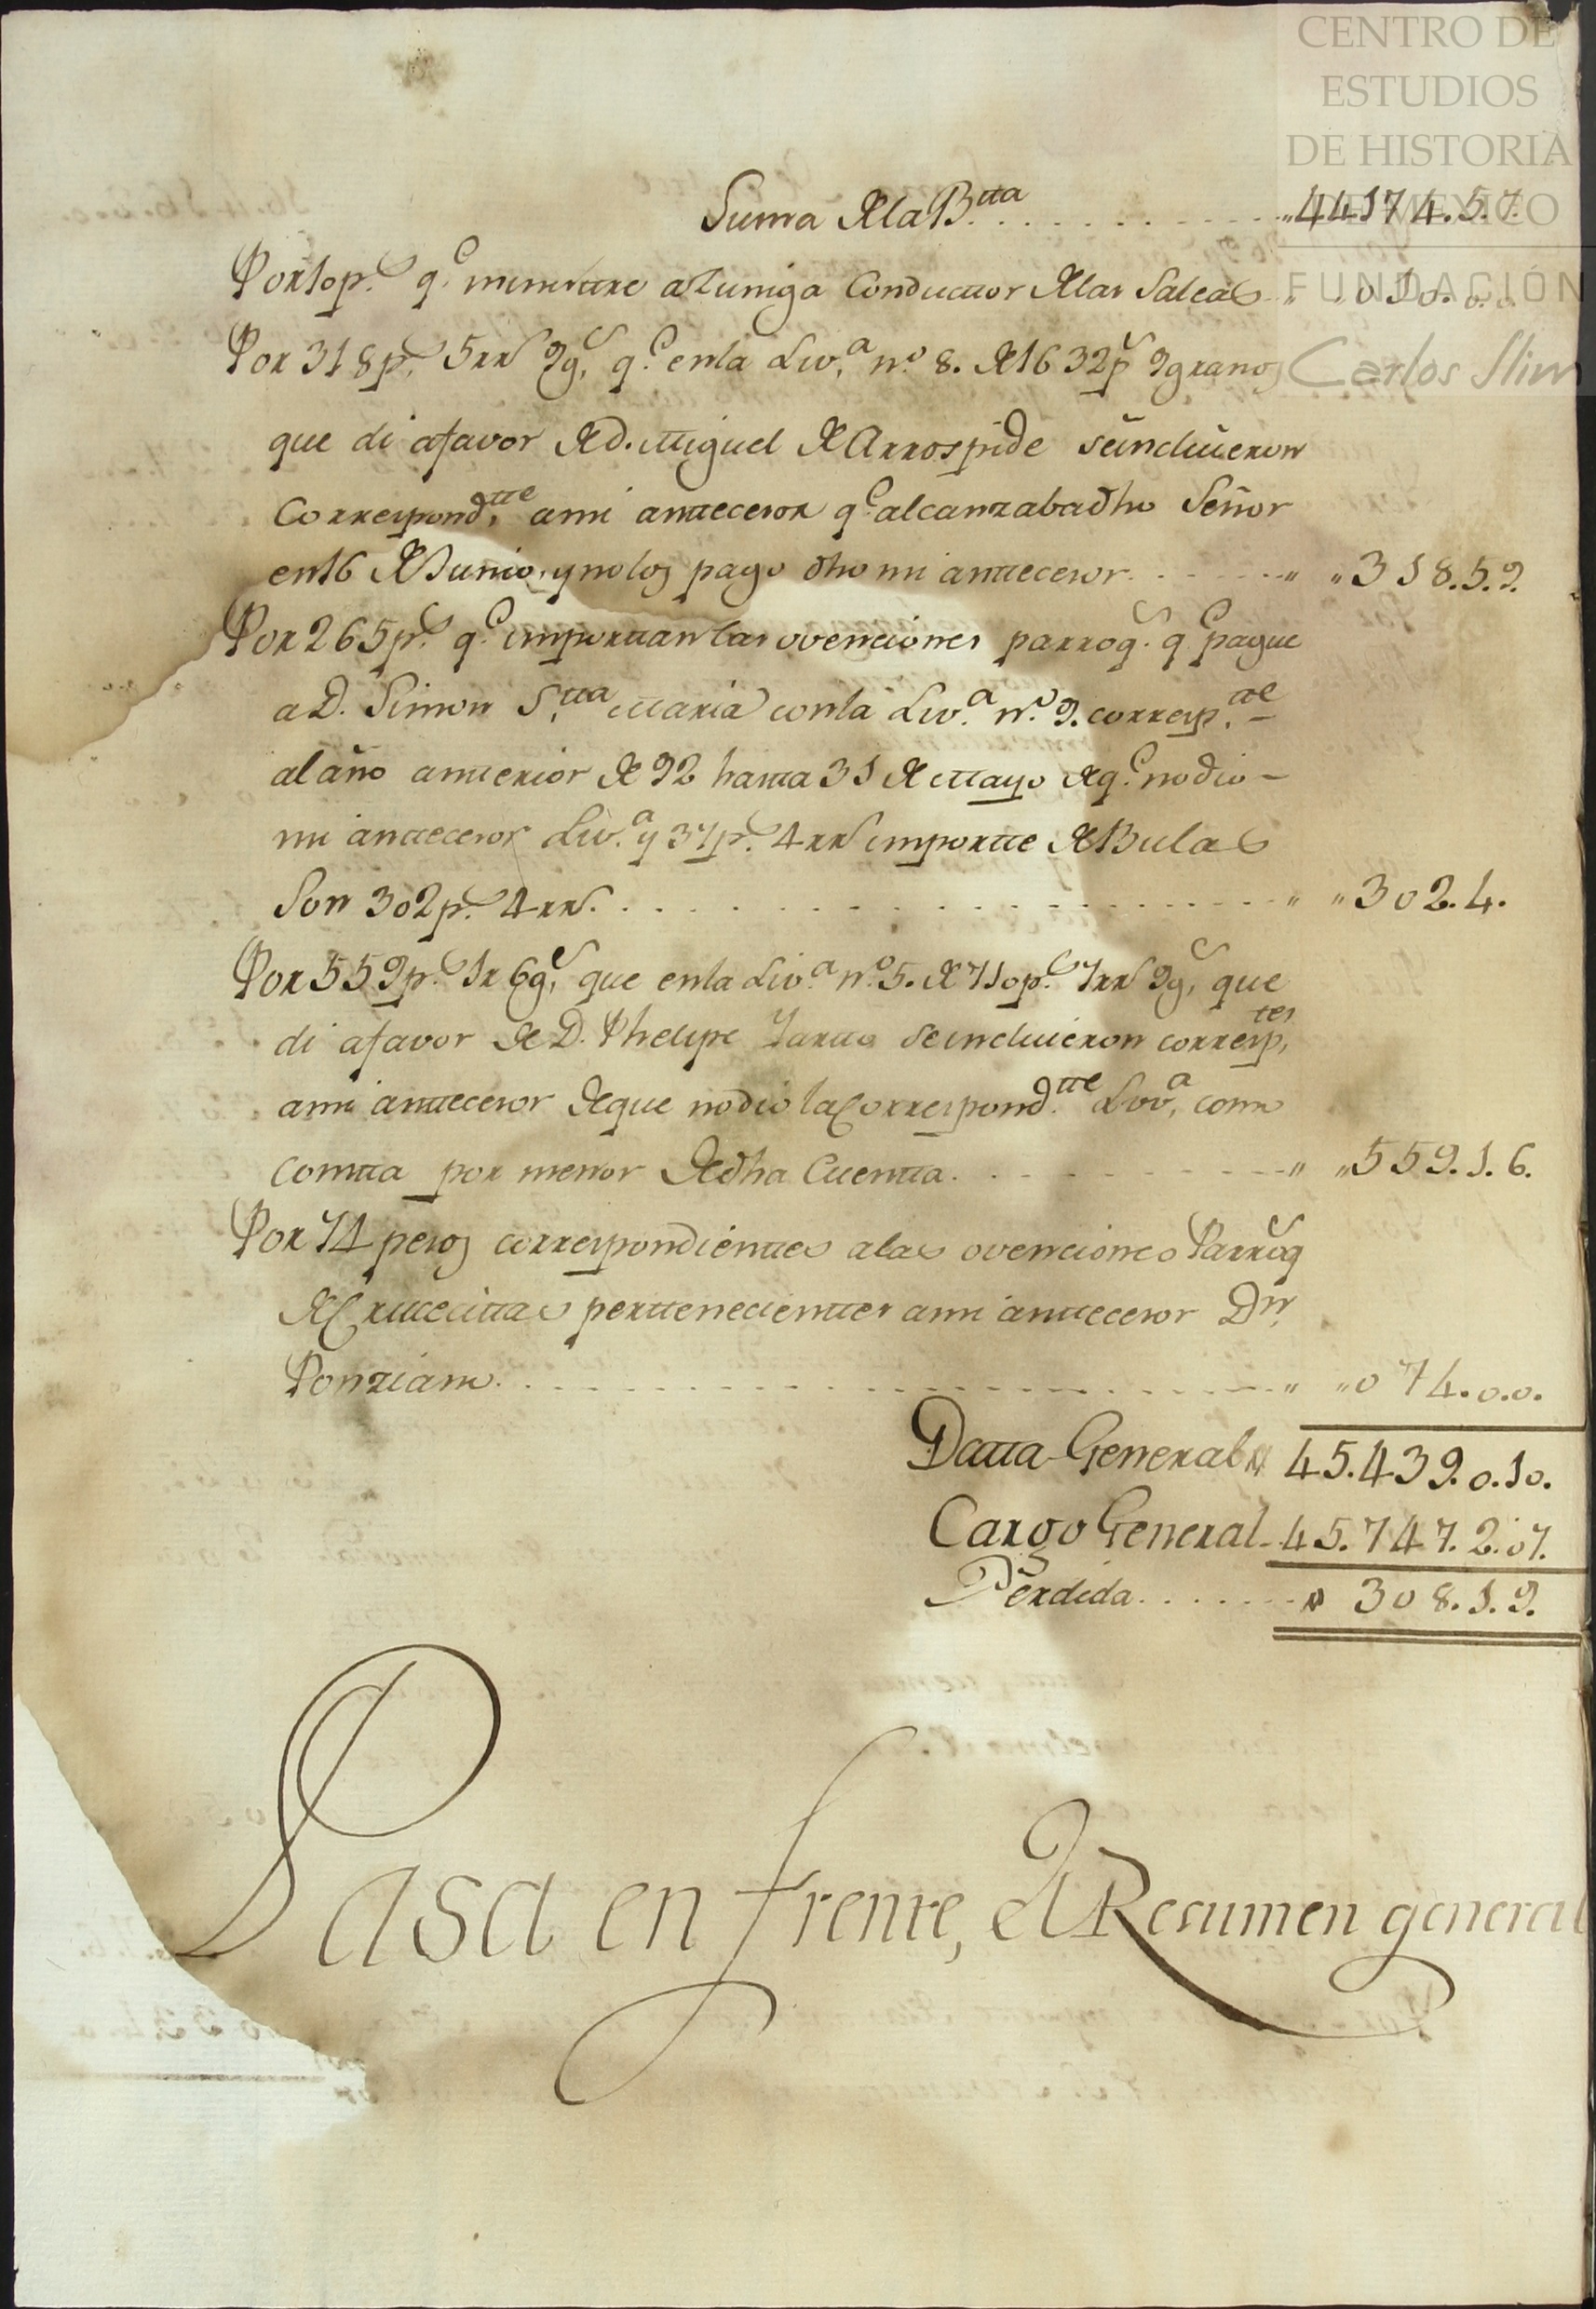 CENTRO DE
ESTUDIOS
DE HISTORIA
DE MEXICO
FUNDACIÓN
Carlos Slim
Suma de la B.tta . . . . . . . . . . . 44174.5.7.
Por 10 p.s q.e ministtre a Zuniga Conducttor de las Saleas .. 010.0.0.
Por 318 p.s 5 rr.s 9 g.s q.e en la Liv.a n.o 8. de 1632 p.s 9 granos
que di afavor de d. Miguel de Arrospide seincluieron
Correspond.tte ami anttecesor q.e alcanzaba dho Señor
en 16 de Junio, y no los pago dho mi anttecesor. . . . . . . " " 318.5.9.
Por 265 p.s q.e importtan las ovenciones parroq.s q.e pague
a D. Simon S.tta Maria con la Liv.a n.o 9. corresp.tte
al año antterior de 92 hastta 31 de Mayo de q.e no dio
mi anttecesor Liv.a y 37 p.s 4 rr.s importte de Bulas
Son 302 p.s 4 rr.s . . . . . . . . . . . . " " 302.4.
Por 559 p.s 1 r 6 g.s que en la Liv.a n.o 5. de 710 p.s 7 rr.s 9 g.s que
di afavor de D. Phelipe seincluieron corresp.tes
ami anttecesor de que no dio la Correspond.tte Liv.a, como
constta por menor de dha Cuentta. . . . . . . . " " 559.1.6.
Por 74 pesos correspondienttes a las ovenciones Parroq.s
de Crucecittas perttenecienttes ami anttecesor D.n
Ponziano. . . . . . . . . . . . . . . " " 074.0.0.
Datta General 45.439.0.10.
Cargo General 45.747.2.07.
Perdida . . . . . . . 308.1.9.
Pasa en frente, el Resumen general